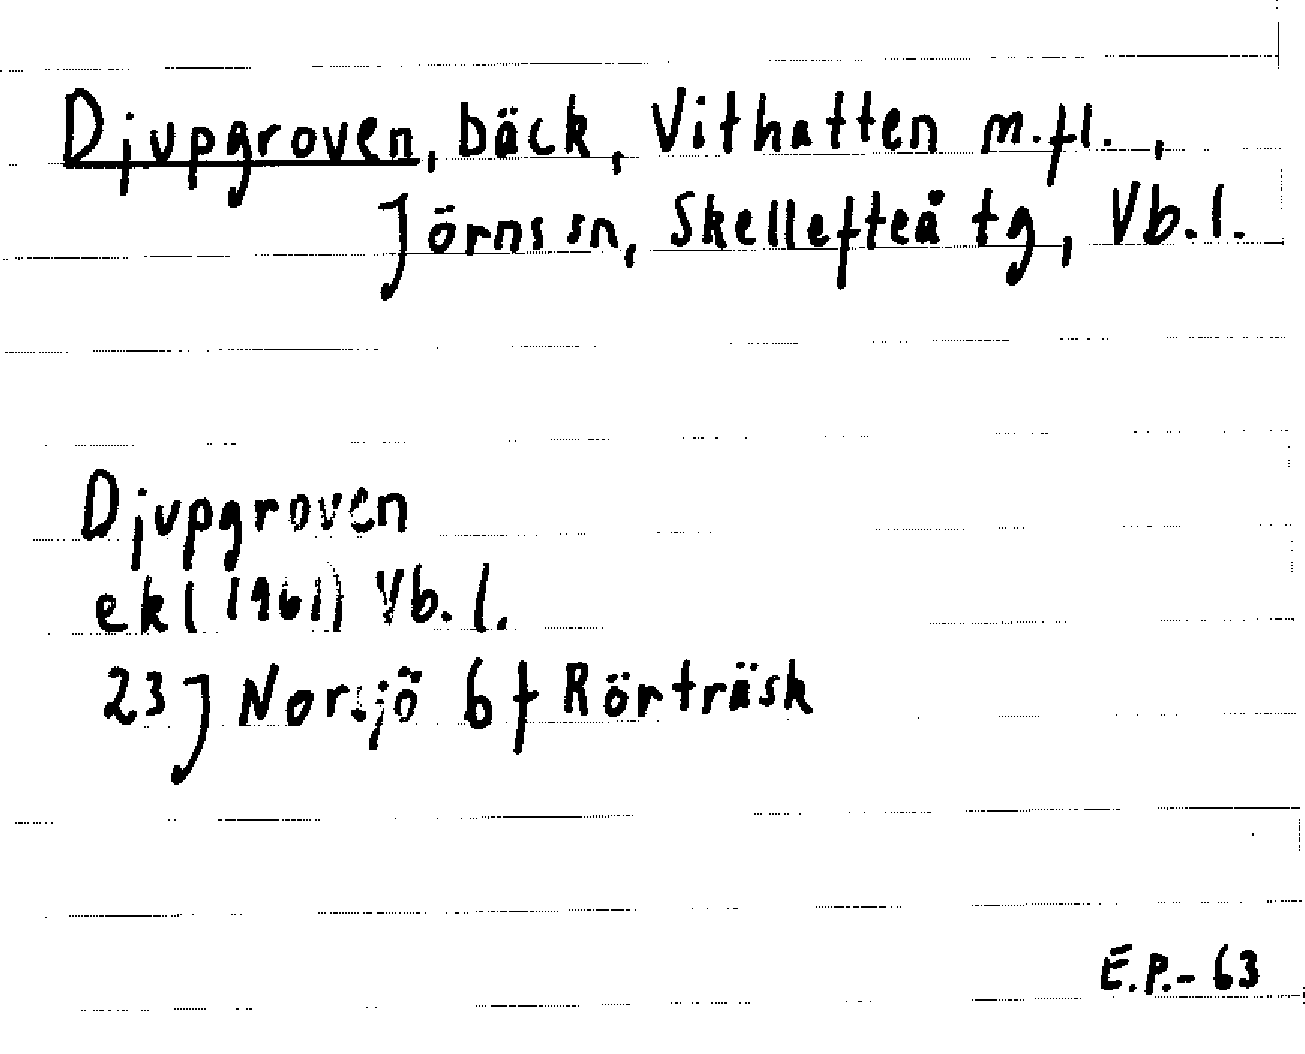 Djupgroven, bäck, Vithatten m.fl.,
Jörns sn, Skellefteå tg, Vb.l.
Djupgroven
ekl (1961) Vb.l.
23J Norsjö 6f Rörträsk
E.P.-63